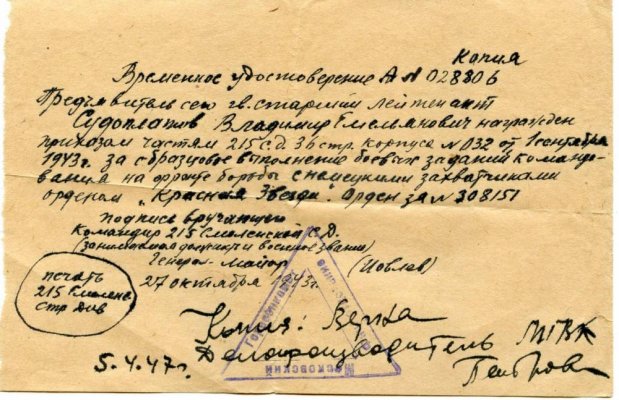 Копия
Временное удостоверение А № 028306
Предъявитель сего гв. старший лейтенант
Судоплатов Владимир Емельянович награжден
приказом частям 215 с.д. 36 стр. корпуса № 032 от 1 сентября
1943г. за образцовое выполнение боевых заданий командо-
вания на фронте борьбы с немецкими захватчиками
орденом "Красная Звезда". Орден за № 308151
подпись вручающего
Командир 215 Смоленской С.Д.
(занимаемая должность и военное звание)
Генерал-майор (Иовлев)
27 октября 1943г.
печать
215 Смоленс.
стр див
Копия: Верна
Делопроизводитель
5.4.47г.
Петров
Московский